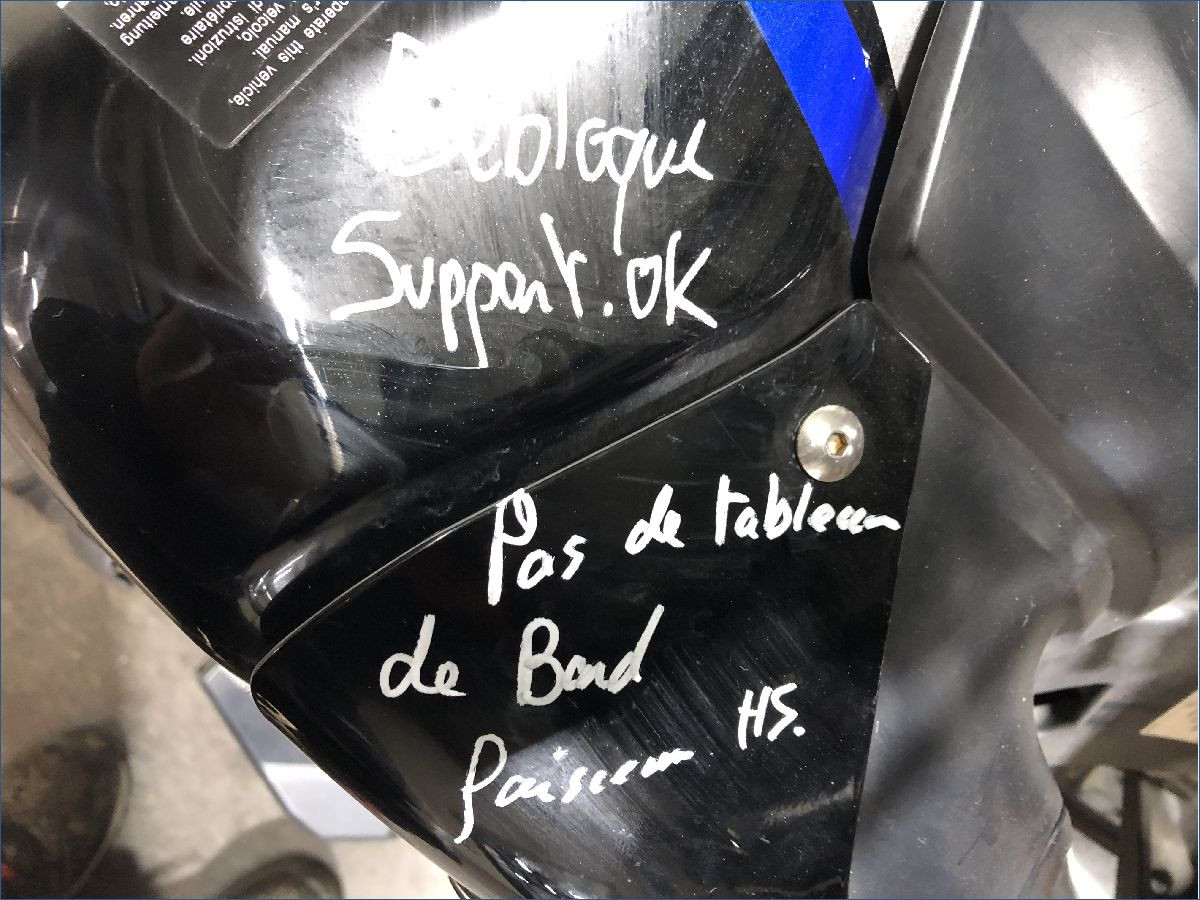 perate this vehicle,
's manual.
di istruzioni
veicolo.
anleitung
Debloque
Support. OK
Pas de tableau
de Bord
faisceau HS.